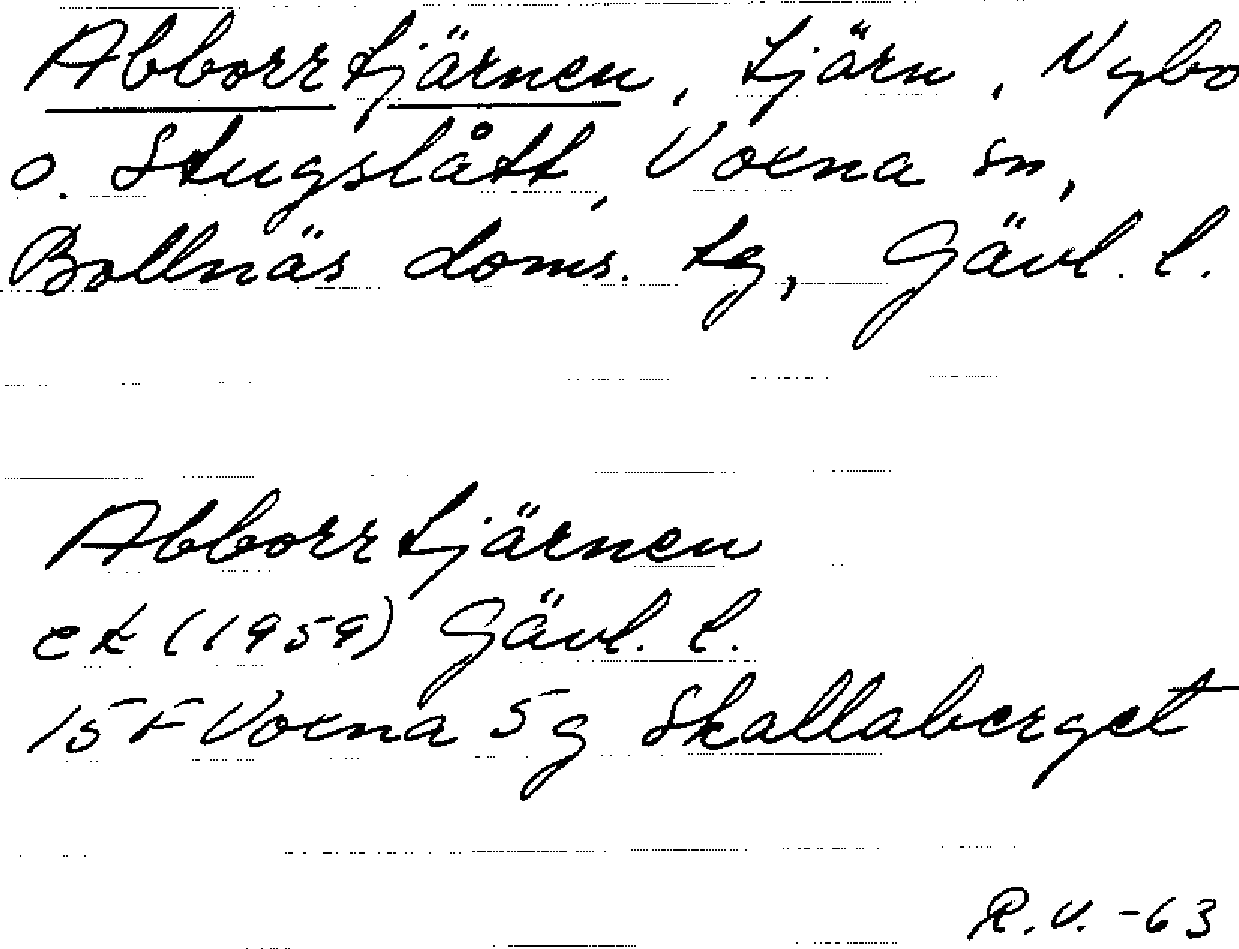 Abborrtjärnen, tjärn, Nybo
o. Stugslått, Voxna sn,
Bollnäs doms. tg, Gävl. l.
Abborrtjärnen
ek (1959) Gävl. l.
15 F Voxna 5 g Skallaberget
R.V. -63